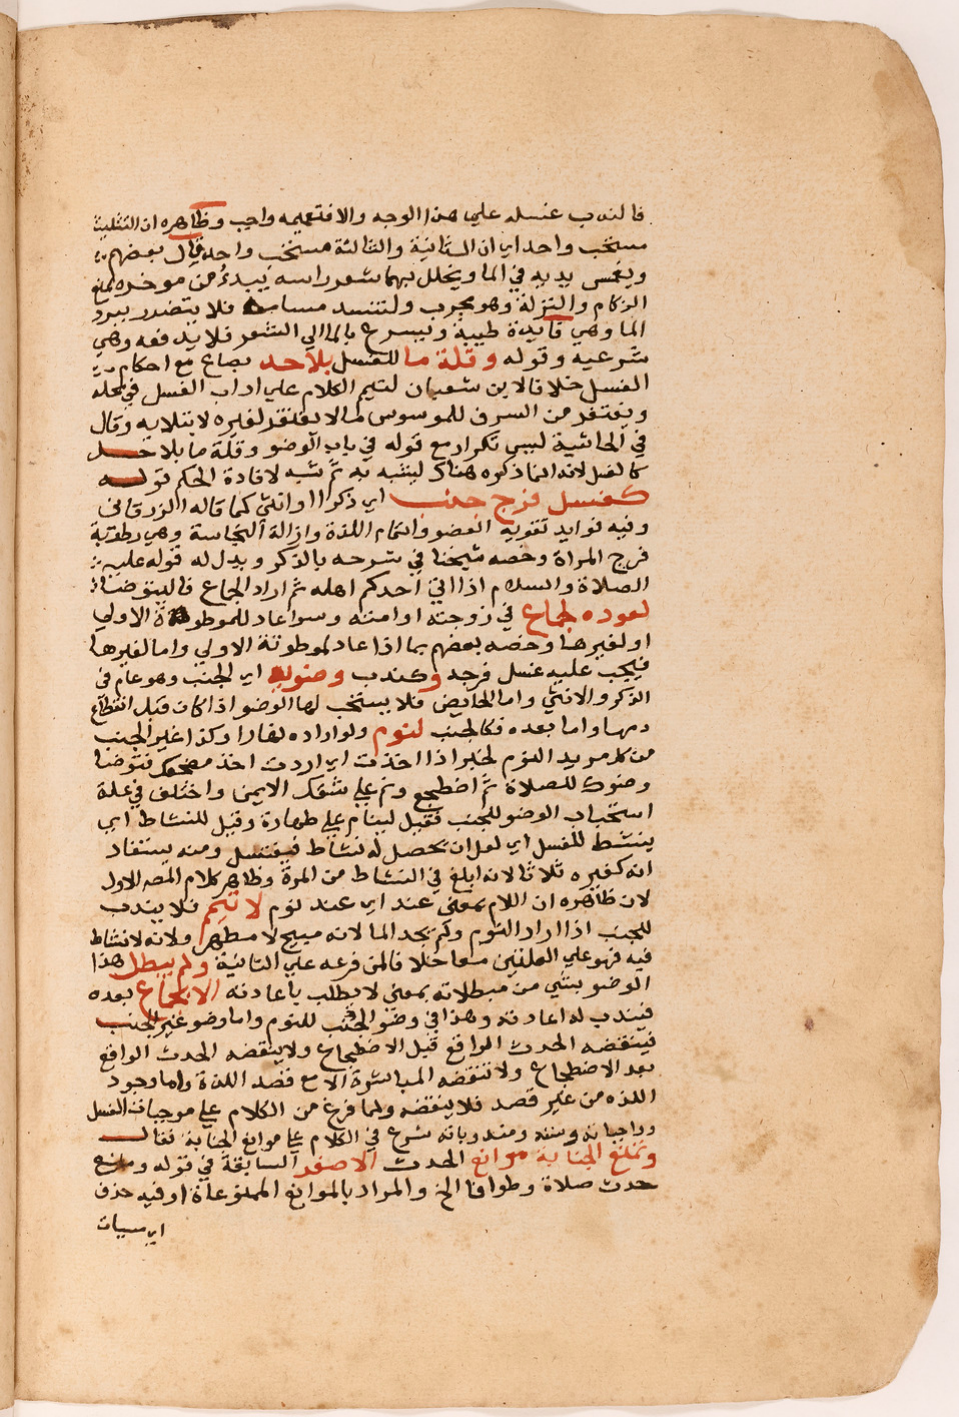 فالندب غسله علي هذا الوجه والا فتعميمه واجب وظاهره ان التثليث
مستحب واحد اي ان الثانية والثالثة مستحب واحد قال بعضهم
ويغمس يديه في الما ويخلل بهما شعر راسه يبدء من موخره لمنع
الزكام والنزلة وهو مجرب ولتنسد مسامه فلا يتضرر ببرد
الما وهي فايدة طيبة ويسرع بالما الي الشعر فلا يدفعه وهي
شرعيه وقوله وقلة ما للغسل بلاحد بصاع مع احكام
الغسل خلافا لابن شعبان لتيم الكلام علي اداب الغسل في محله
ويغتفر من السرف للموسوس ما لا يغتفر لغيره لابتلايه وقال
في الحاشية ليس تكرار مع قوله في باب الوضو وقلة ما بلا حد
كالغسل لانه انما ذكره هناك لينبه به ثم شبه لافادة الحكم قوله
كغسل فرج جنب اي ذكرا او انثي كما قاله الزرقاني
وفيه فوايد تقوية العضو واتمام اللذة وازالة النجاسة وهي رطوبة
فرج المراة وخصه شيخنا في شرحه بالذكر ويدل له قوله عليه
الصلاة والسلام اذا اتي احدكم اهله ثم اراد الجماع فاليتوضا
لعوده لجماع في زوجته او امته وسوا عاد للموطوة الاولي
او لغيرها وخصه بعضهم بما اذا عاد لموطوته الاولي واما لغيرها
فيجب عليه غسل فرجه وكندب وضوه اي الجنب وهو عام في
الذكر والانثي واما الحايض فلا يستحب لها الوضو اذا كان قبل انقطاع
دمها واما بعده فكالجنب لنوم ولو اراده نهارا وكذا غير الجنب
من كل مريد النوم لخبر اذا اخذت اي اردت اخذ مضجعك فتوضا
وضوك للصلاة ثم اضطجع ونم علي شقك الايمن واختلف في علة
استحباب الوضو للجنب فقيل لينام علي طهارة وقيل للنشاط اي
ينشط للغسل اي لعل ان يحصل له نشاط فيغتسل ومنه يستفاد
انه كغيره ثلاثا لانه ابلغ في النشاط من المرة وظاهر كلام المصه الاول
لان ظاهره ان اللام بمعني عند اي عند نوم لا تيمم فلا يندب
للجنب اذا اراد النوم ولم يجد الما لانه مبيح لا مطهر ولانه لا نشاط
فيه فهو علي العلتين معا خلافا لمن فرعه علي الثانية ولم يبطل هذا
الوضو بشي من مبطلاته بمعني لا يطلب باعادته الا بجماع بعده
فيندب له اعادته وهذا في وضو الجنب للنوم واما وضو غير الجنب
فينقضه الحدث الواقع قبل الاضطجاع ولا ينقضه الحدث الواقع
بعد الاضطجاع ولا تنقضه المباشرة الا مع قصد اللذة واما وجود
اللذه من غير قصد فلا ينقضه ولما فرغ من الكلام علي موجبات الغسل
وواجباته وسننه ومندوباته شرع في الكلام علي موانع الجنابة فقال
وتمنع الجنابة موانع الحدث الاصغر السابقة في قوله ومنع
حدث صلاة وطوافا الخ والمراد بالموانع الممنوعاة او فيه حذف
اي سيات